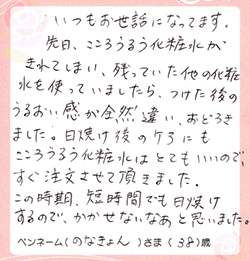 いつもお世話になってます。
先日、こころうるう化粧水が
きれてしまい、残っていた他の化粧
水を使っていましたら、つけた後の
うるおい感が全然違い、おどろき
ました。日焼け後のケアにも
こころうるう化粧水はとてもいいので、
すぐ注文させて頂きました。
この時期、短時間でも日焼け
するので、かかせないなあと思いました。
ペンネーム(のなきょん)さま(38)歳